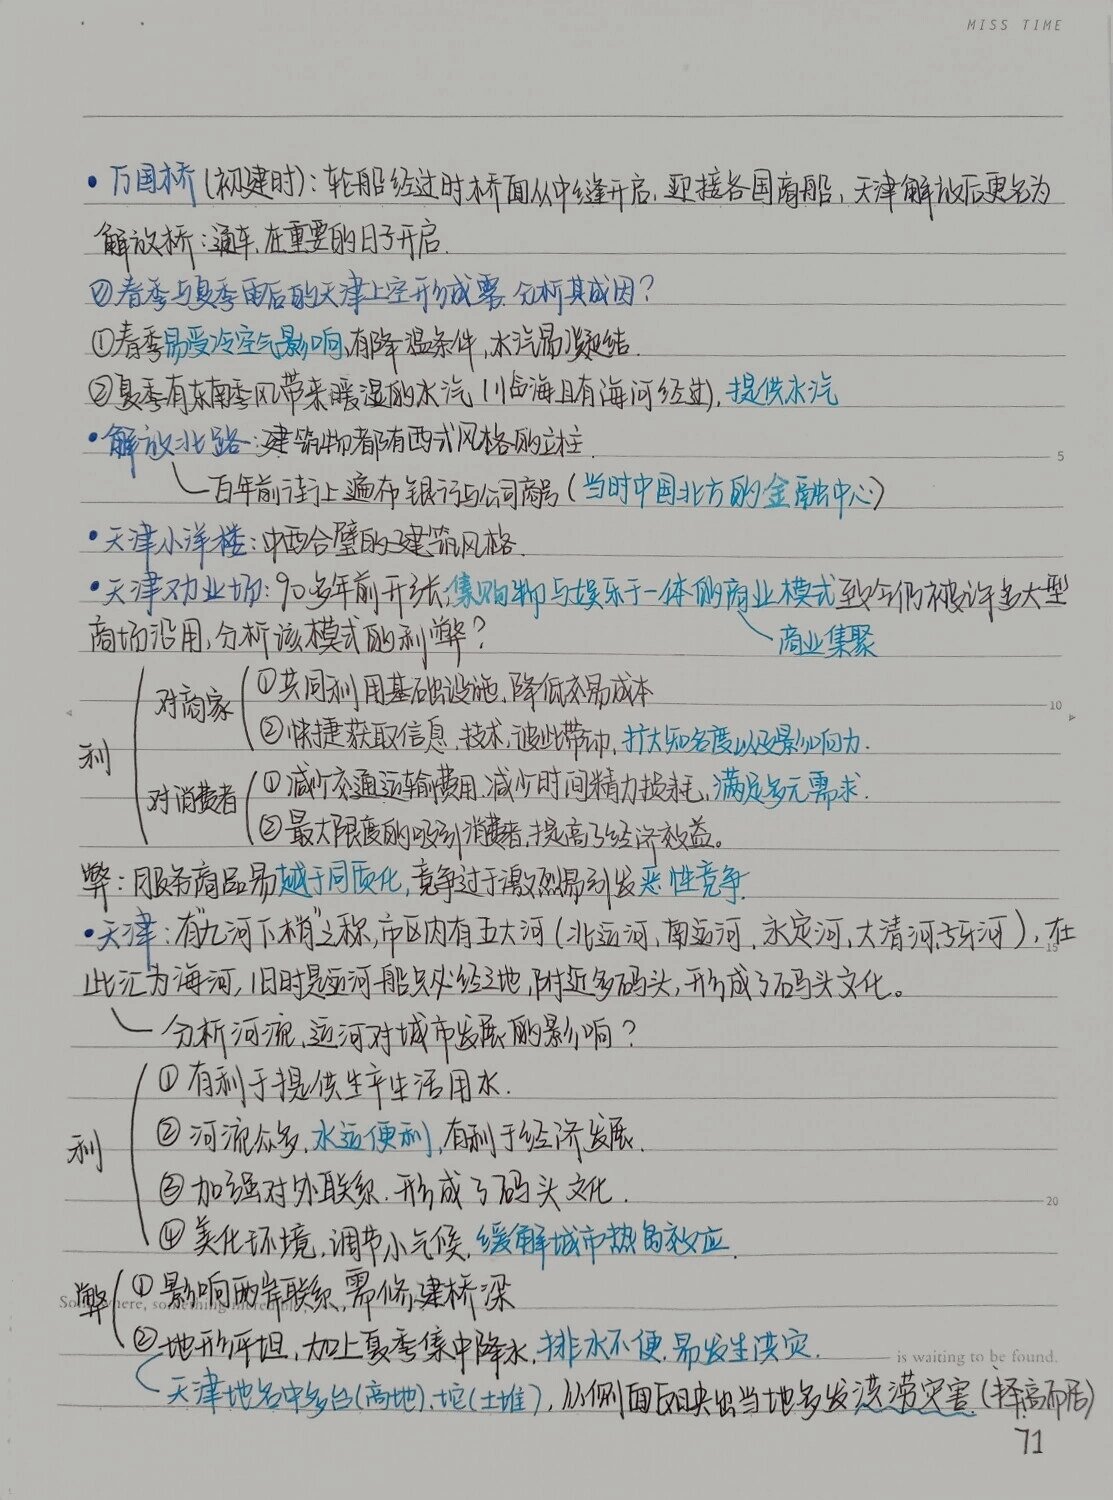 MISS TIME
•万国桥(初建时)：轮船经过时桥面从中缝开启，迎接各国商船，天津解放后更名为
解放桥：通车，在重要的日子开启.
②春季与夏季雨后的天津上空形成雾，分析其成因？
①春季易受冷空气影响，有降温条件，水汽易凝结.
②夏季有东南季风带来暖湿的水汽(临海且有海河经过)，提供水汽
•解放北路：建筑物都有西式风格的立柱.
百年前街上遍布银行与公司商号(当时中国北方的金融中心)
•天津小洋楼：中西合璧的建筑风格.
•天津劝业场：90多年前开张，集购物与娱乐于一体的商业模式至今仍被许多大型
商场沿用，分析该模式的利弊？
商业集聚
利
对商家
①共同利用基础设施，降低交易成本
②快捷获取信息、技术，彼此带动，扩大知名度以及影响力.
对消费者
①减少交通运输费用，减少时间精力损耗，满足多元需求.
②最大限度的吸引消费者，提高了经济效益。
弊：服务商品易趋于同质化，竞争过于激烈易引发恶性竞争.
•天津：有"九河下梢"之称，市区内有五大河(北运河、南运河、永定河、大清河、子牙河)，在
此汇为海河，旧时是运河船只必经之地，附近多码头，形成了码头文化。
分析河流、运河对城市发展的影响？
利
①有利于提供生产生活用水.
②河流众多，水运便利，有利于经济发展.
③加强对外联系，形成了码头文化.
④美化环境，调节小气候，缓解城市热岛效应.
弊
①影响两岸联系，需修建桥梁
②地形平坦，加上夏季集中降水，排水不便，易发生洪灾.
is waiting to be found.
天津地名中多台(高地)、坨(土堆)，从侧面反映出当地多发洪涝灾害.(择高而居)
71
5
10
15
20